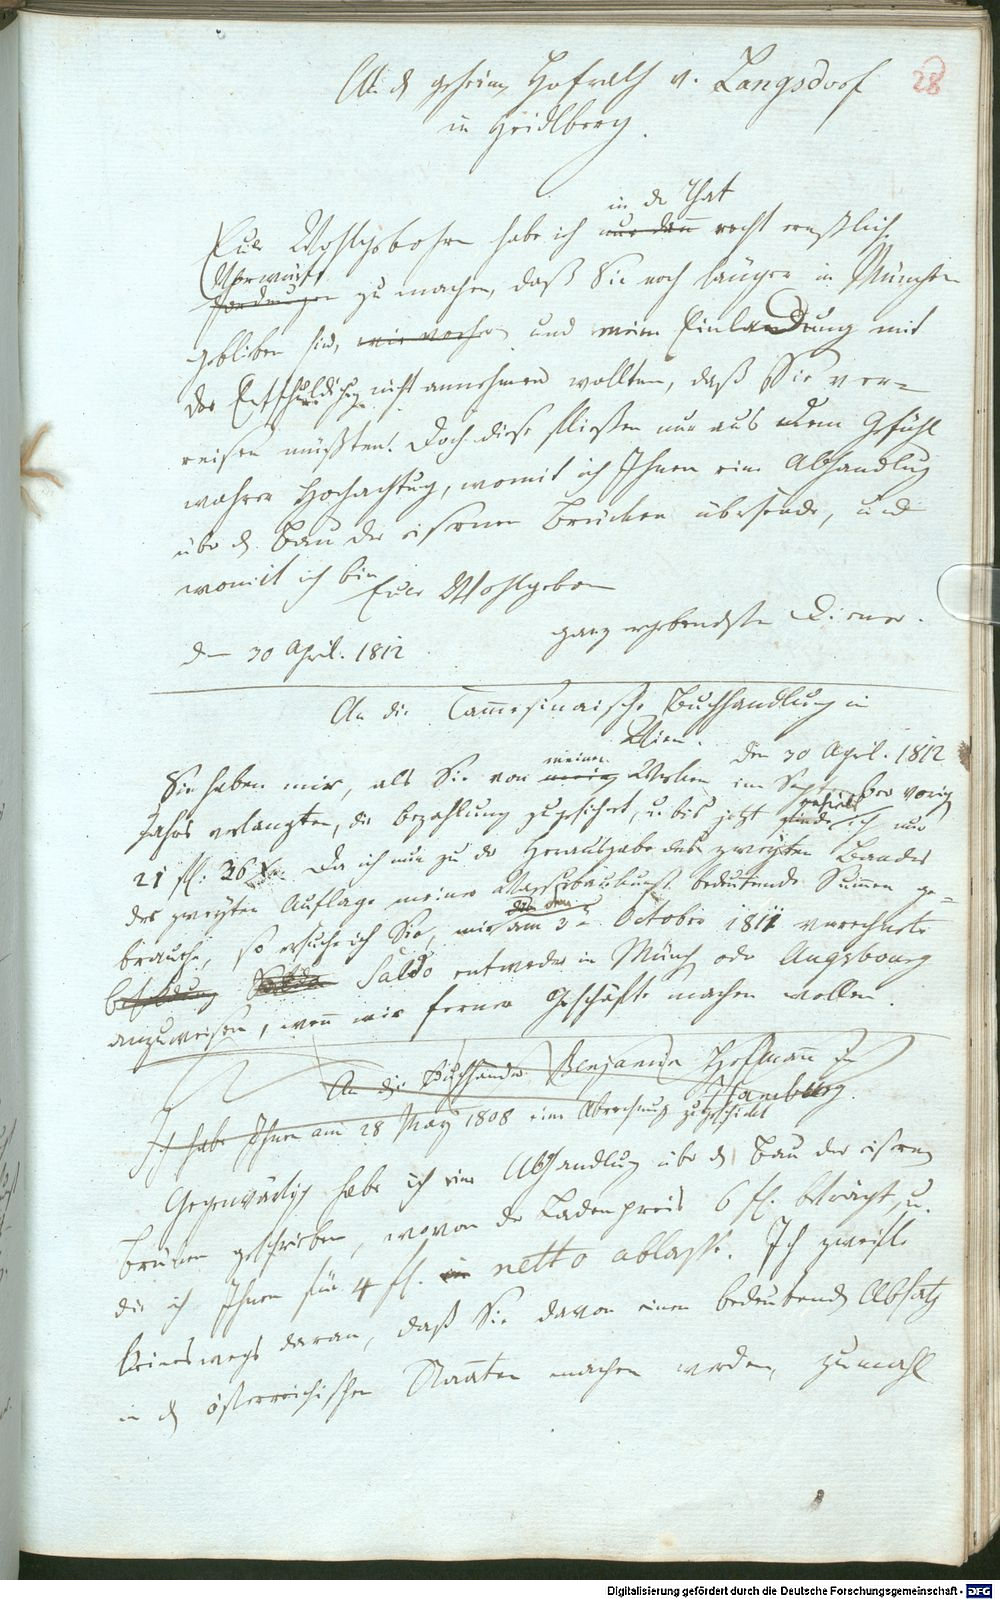 28
An d geheim Hofrath v. Langsdorf
in Heidlberg.
in der That
Eur Wohlgebohrn habe ich nur den recht ernstlich
Vorwürfe
Forderungen zu machen, daß Sie noch länger in München
gebliben sind, und meine Einladung mit
der Entschuldichug nicht annehmen wollten, daß Sie ver=
reisen müßten! Doch diese fließen nur aus dem Gefühl
wahrer Hochachtug, womit ich Ihnen eine Abhandlug
über d Bau der eisernen Brücken übersende, und
womit ich bin
Eure Wohlgeborn
ganz ergebendster Diener.
den 30 April. 1812
An die Cammesinaische Buchhandlung in
Wien.
den 30 April. 1812
meinen
Sie haben mir, als Sie von meinen Werken im September vorig
Jahrs verlangten, die Bezahlung zugesichert, u. bis jetzt ich nur
21 fl: 36 Xr. Da ich nun zu der Herausgabe des zweyten Bandes
der zweyten Auflage meiner Wasserbaukunst bedeutende Summen ge=
brauche, so ersuche ich Sie, mir am 3 October 1811 verrechnete
Saldo entweder in Münch oder Augsbourg
anzuweisen, wenn wir ferner Geschäfte machen wollen.
An die Buchhandler Benjamin Hoffmann zu
Hamburg.
Ich habe Ihnen am 28 May 1808 eine Abrechnug zugeschickt
Gegenwärtig habe ich eine Abhandlug über d Bau der eisern
Brücken geschrieben, wovon der Ladenpreis 6 fl. beträgt, u.
die ich Ihnen für 4 fl. netto ablasse. Ich zweifle
keineswegs daran, daß Sie davon einen bedeutend Absatz
in d österreichischen Staaten machen werden, zumahl
Digitalisierung gefördert durch die Deutsche Forschungsgemeinschaft - DFG